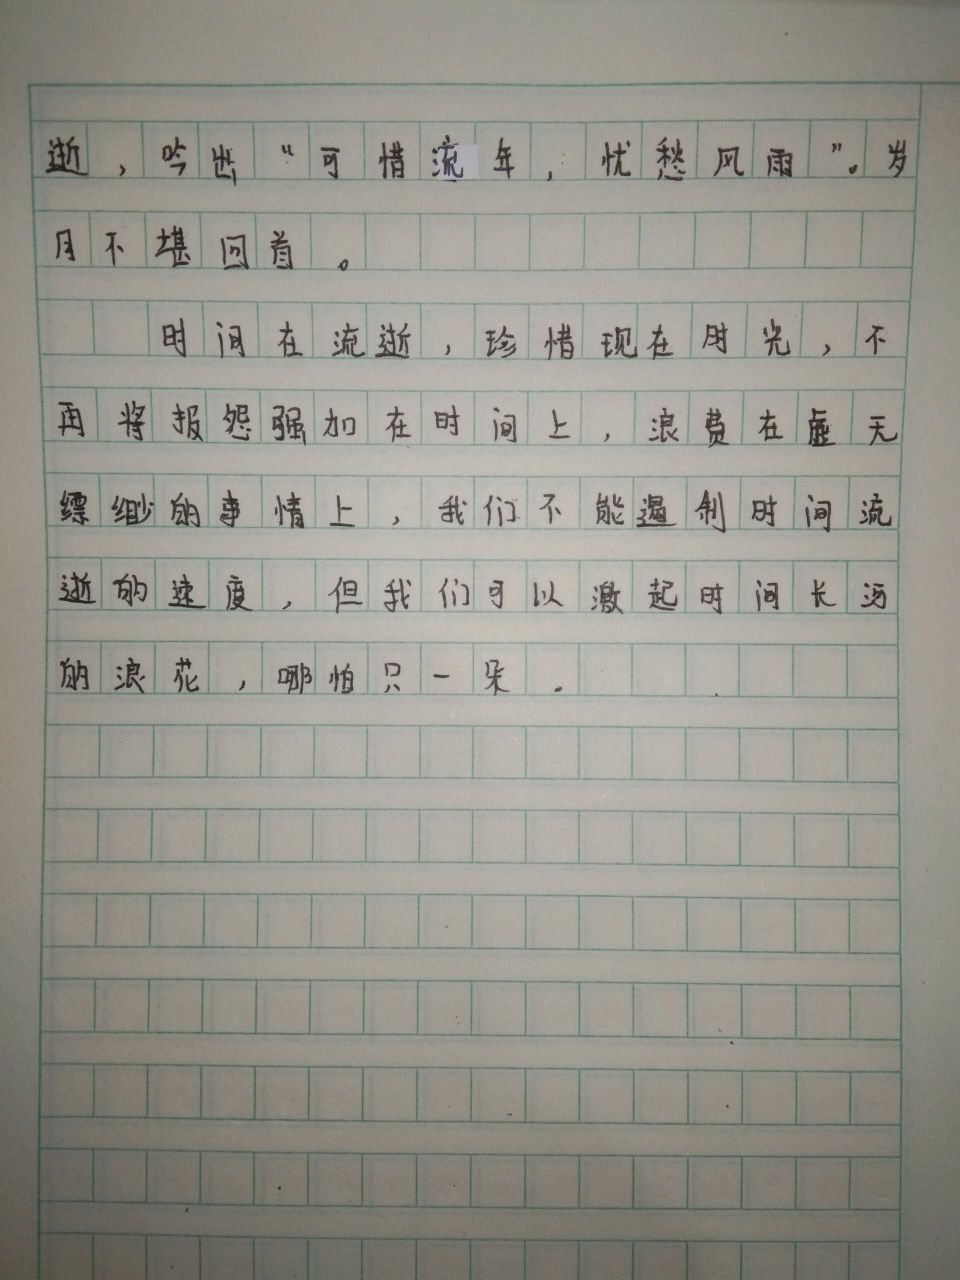 逝，吟出“可惜流年，忧愁风雨”。岁
月不堪回首。
时间在流逝，珍惜现在时光，不
再将报怨强加在时间上，浪费在虚无
缥缈的事情上，我们不能遏制时间流
逝的速度，但我们可以激起时间长河
的浪花，哪怕只一朵.